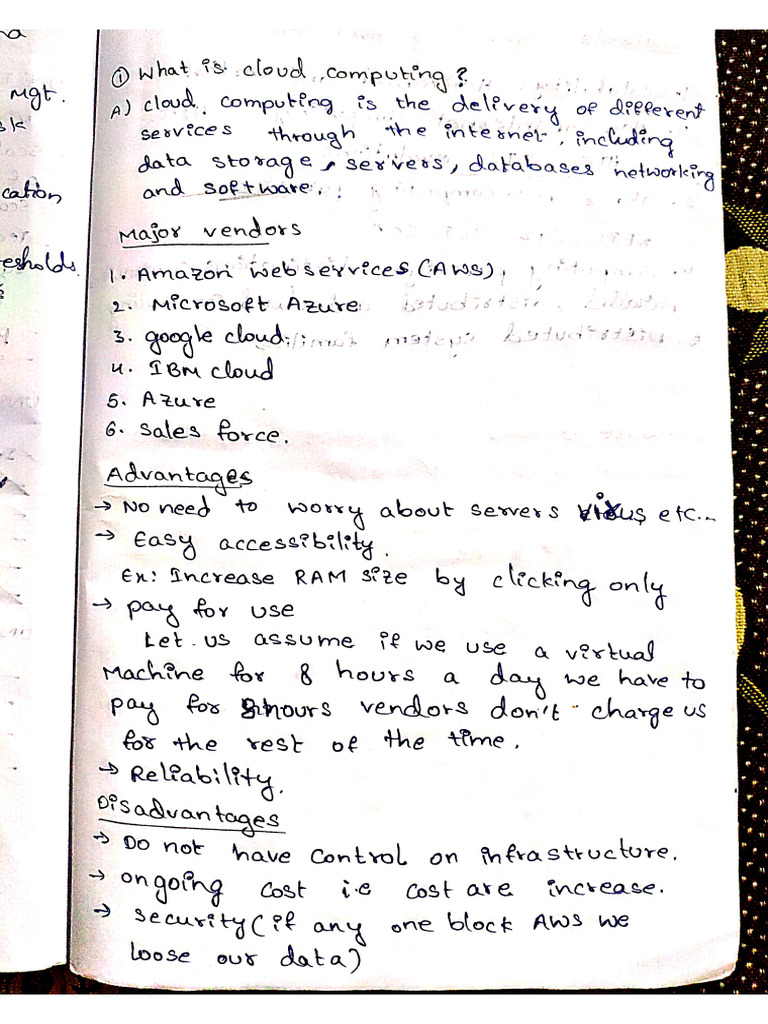 na
Mgt.
sk
cation
esholds.
① What is cloud computing?
A) cloud computing is the delivery of different
services through the internet, including
data storage, servers, databases networking
and software.
Major vendors
1. Amazon web services (AWS)
2. Microsoft Azure
3. google cloud
4. IBM cloud
5. Azure
6. Sales force.
Advantages
→ No need to worry about servers virus etc...
→ Easy accessibility.
Ex: Increase RAM size by clicking only
→ pay for use
Let us assume if we use a virtual
Machine for 8 hours a day we have to
pay for 8hours vendors don't charge us
for the rest of the time.
→ Reliability.
Disadvantages
→ Do not have control on infrastructure.
→ ongoing cost i.e cost are increase.
→ security (if any one block AWS we
loose our data)